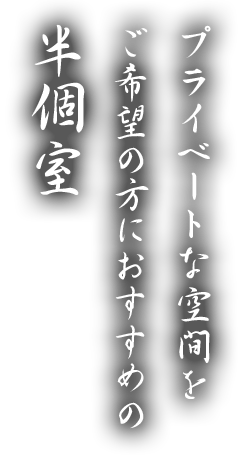 プライベートな空間を
ご希望の方におすすめの
半個室